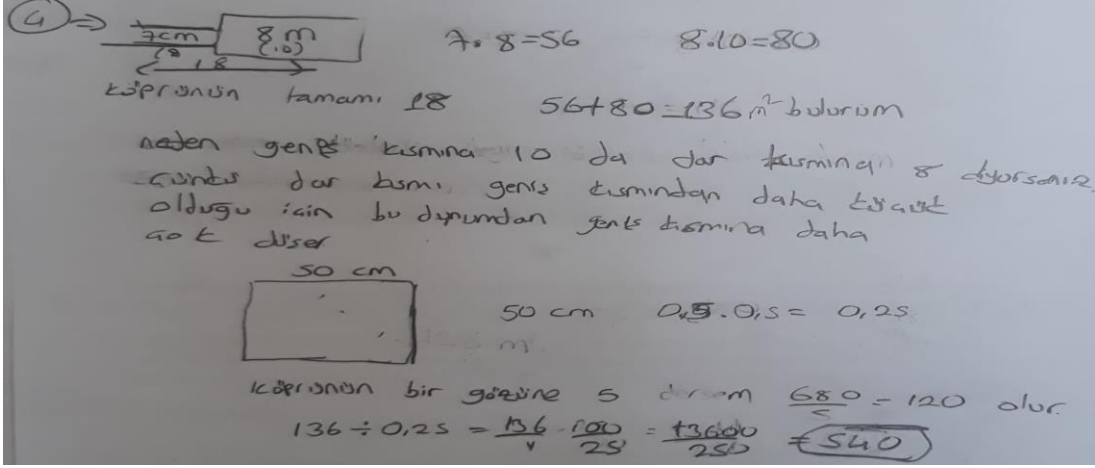 4 ⇒ 7cm 8 m 7.8=56 8.10=80
(8 (10)
18
köprünün tamamı 18 56+80=136 m² bulurum
neden geniş kısmına 10 da dar kısmına 8 diyorsanız
çünkü dar kısmı geniş kısmından daha küçük
olduğu için bu durumdan geniş kısmına daha
çok düşer
50 cm
50 cm 0,5.0,5= 0,25
m
köprünün bir gözüne 5 dersem 680/5 = 120 olur.
136÷0,25 = 136/1 . 100/25 = 13600/250 = 540